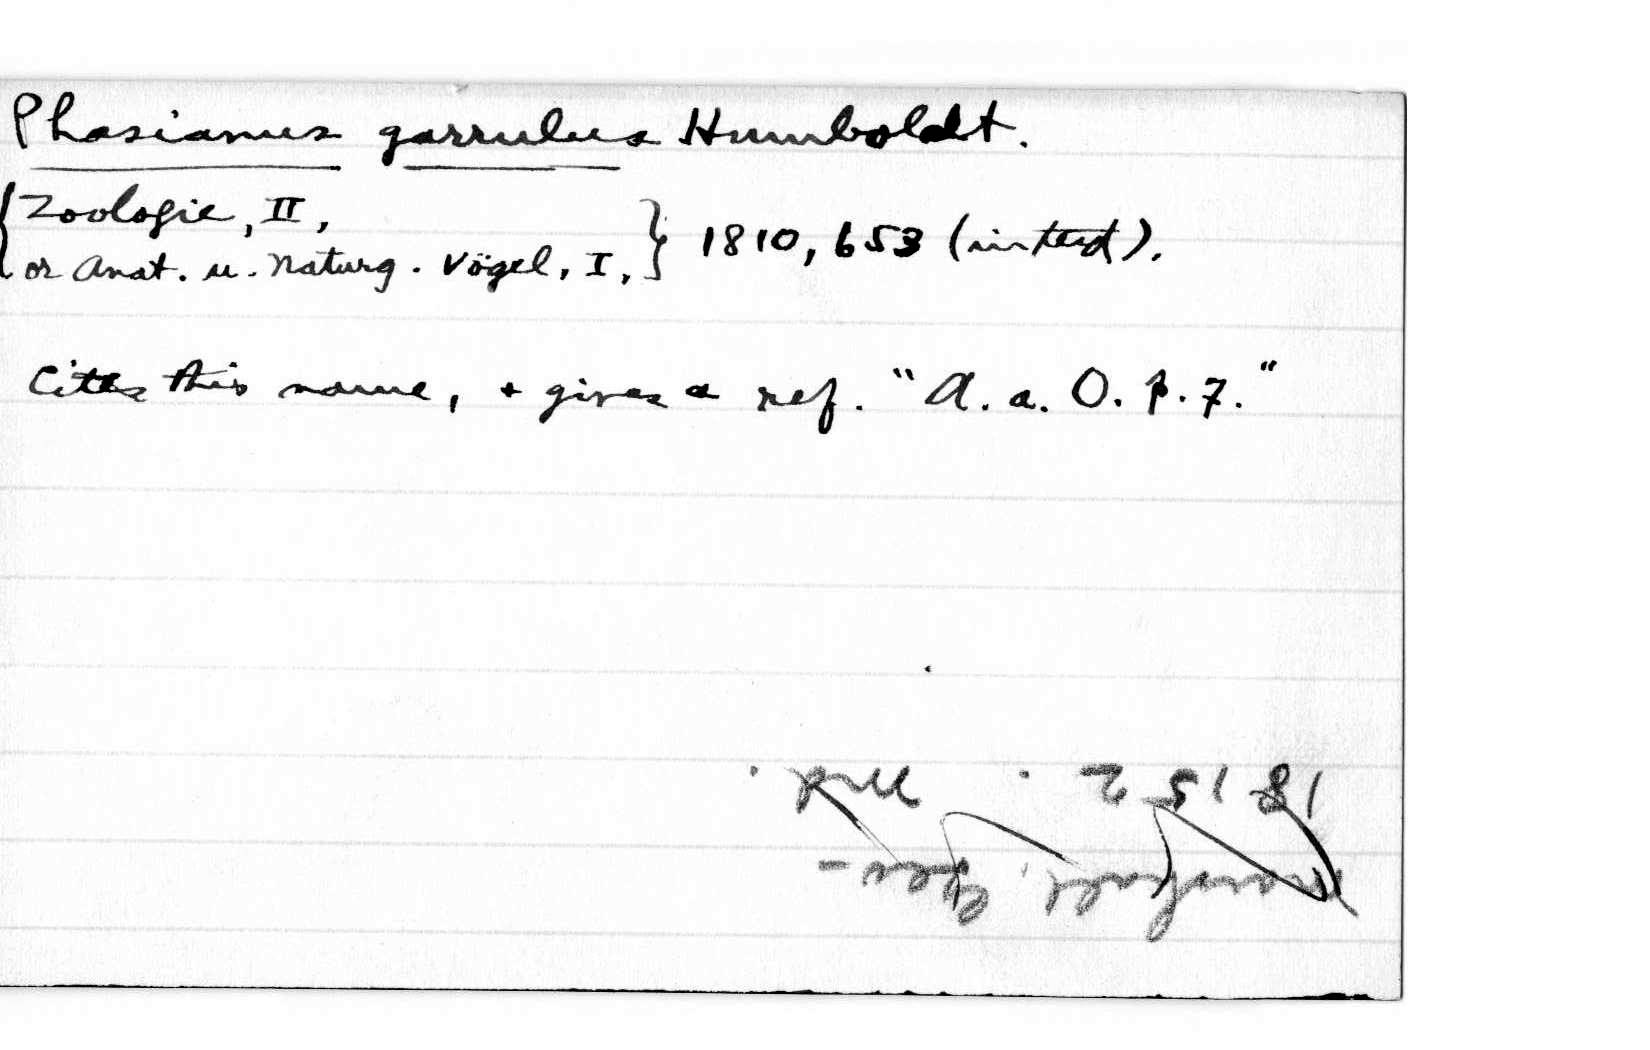 Phasianus garrulus Humboldt.
{ Zoologie, II,
or Anat. u. Naturg. Vögel, I, } 1810, 653 (in text).
Cites this name, + gives a ref. "A. a. O. p. 7."
1815 2.